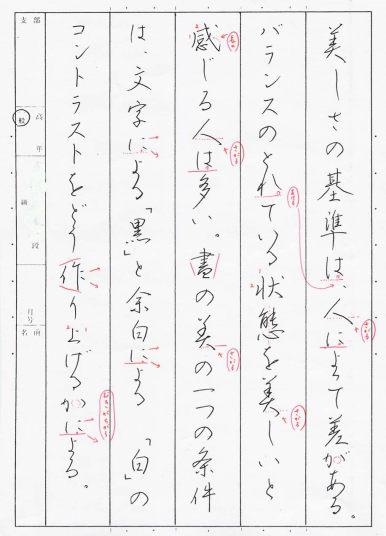 美しさの基準は、人によって差がある。
バランスのとれている状態を美しいと
感じる人は多い。書の美の一つの条件
は、文字による「黒」と余白による「白」の
コントラストをどう作り上げるかによる。
支部
高
般
年
級
段
月号
名前